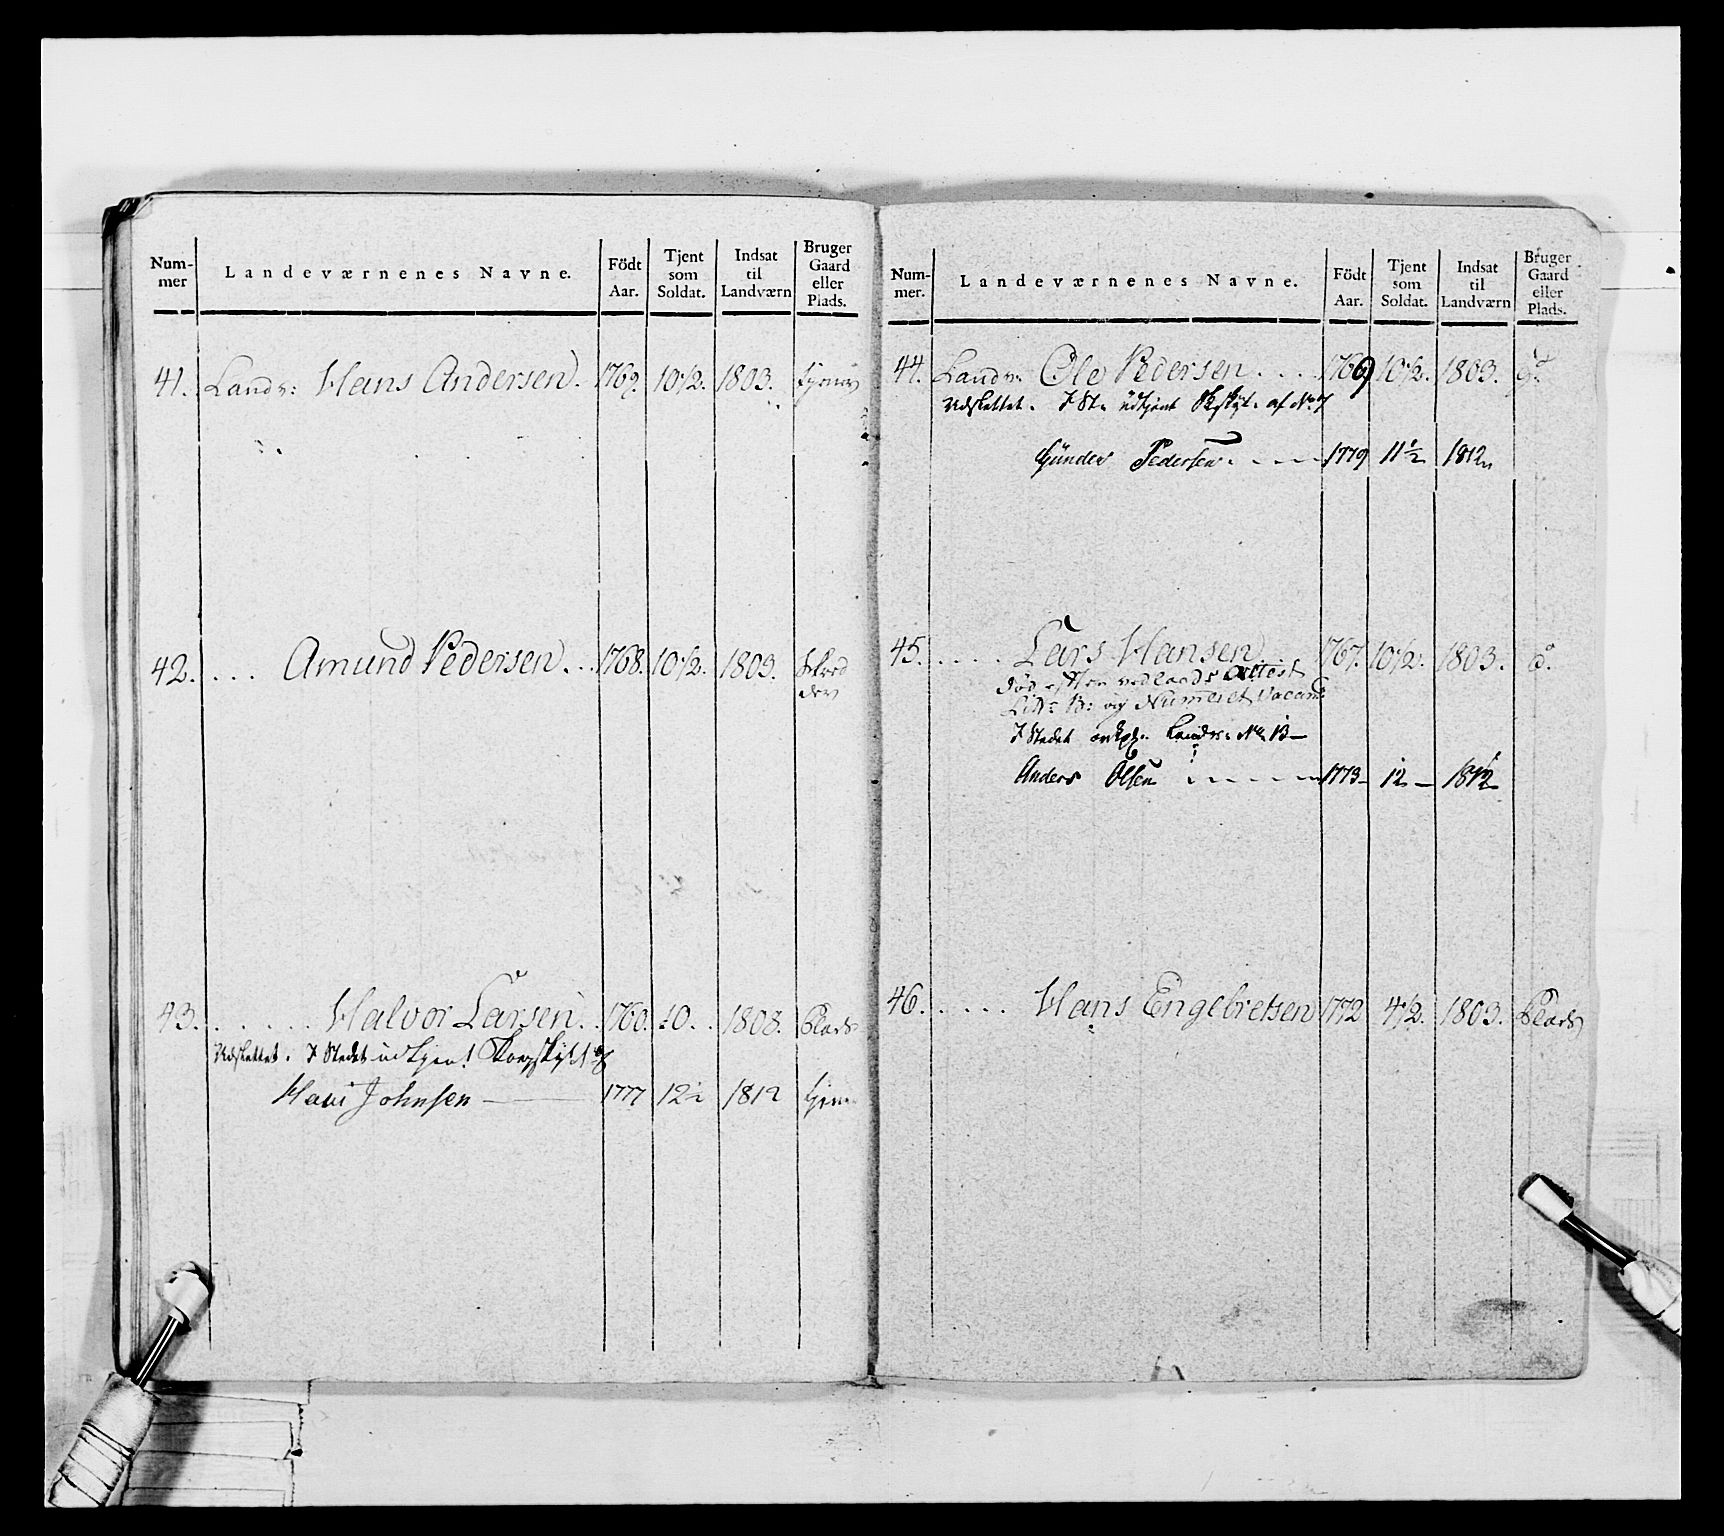 Num-
mer
Landeværnenes Navne.
Födt
Aar.
Tjent
som
Soldat.
Indsat
til
Landværn
Bruger
Gaard
eller
Plads.
41. Landv: Hans Andersen. 1769. 10 1/2. 1803.
42. . . . Amund Pedersen . . 1768. 10 1/2. 1803. Skred
der
43. . . . . . . Halvor Larsen . . 1760. 10 . . 1808. Plads
Udslettet. I Stedet udtjent
Hans Johnsen — 1777 12 1812
Num-
mer.
Landeværnenes Navne.
Födt
Aar.
Tjent
som
Soldat.
Indsat
til
Landværn
Bruger
Gaard
eller
Plads.
44. Landv: Ole Pedersen . . . . 1769 10 1/2. 1803.
Udslettet. I St: udtjent af No 7
Gunder Pedersen. - - - 1779 11 1/2 1812
45. . . . . . Lars Hansen 1767. 10 1/2. 1803. do.
død efter vedlagde Attest
Litr: B: og Numeret Vacant
I Stedet Landv: No 13 —
Anders Olsen - - - - 1773 — 12 — 1812
46. . . . . . Hans Engebretsen 1772 4 1/2. 1803. Plads